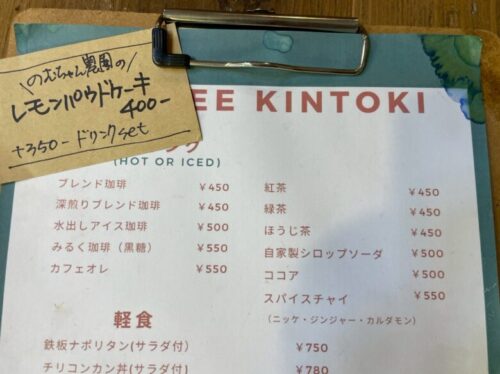 ＼のむちゃん農園の／
レモンパウドケーキ
400-
+350-ドリンクset
EE KINTOKI
ンク
(HOT OR ICED)
ブレンド珈琲 ￥450
深煎りブレンド珈琲 ￥450
水出しアイス珈琲 ￥500
みるく珈琲（黒糖） ￥550
カフェオレ ￥550
紅茶 ￥450
緑茶 ￥450
ほうじ茶 ￥450
自家製シロップソーダ ￥500
ココア ￥500
スパイスチャイ ￥550
（ニッケ・ジンジャー・カルダモン）
軽食
鉄板ナポリタン(サラダ付) ￥750
チリコンカン丼(サラダ付) ￥780